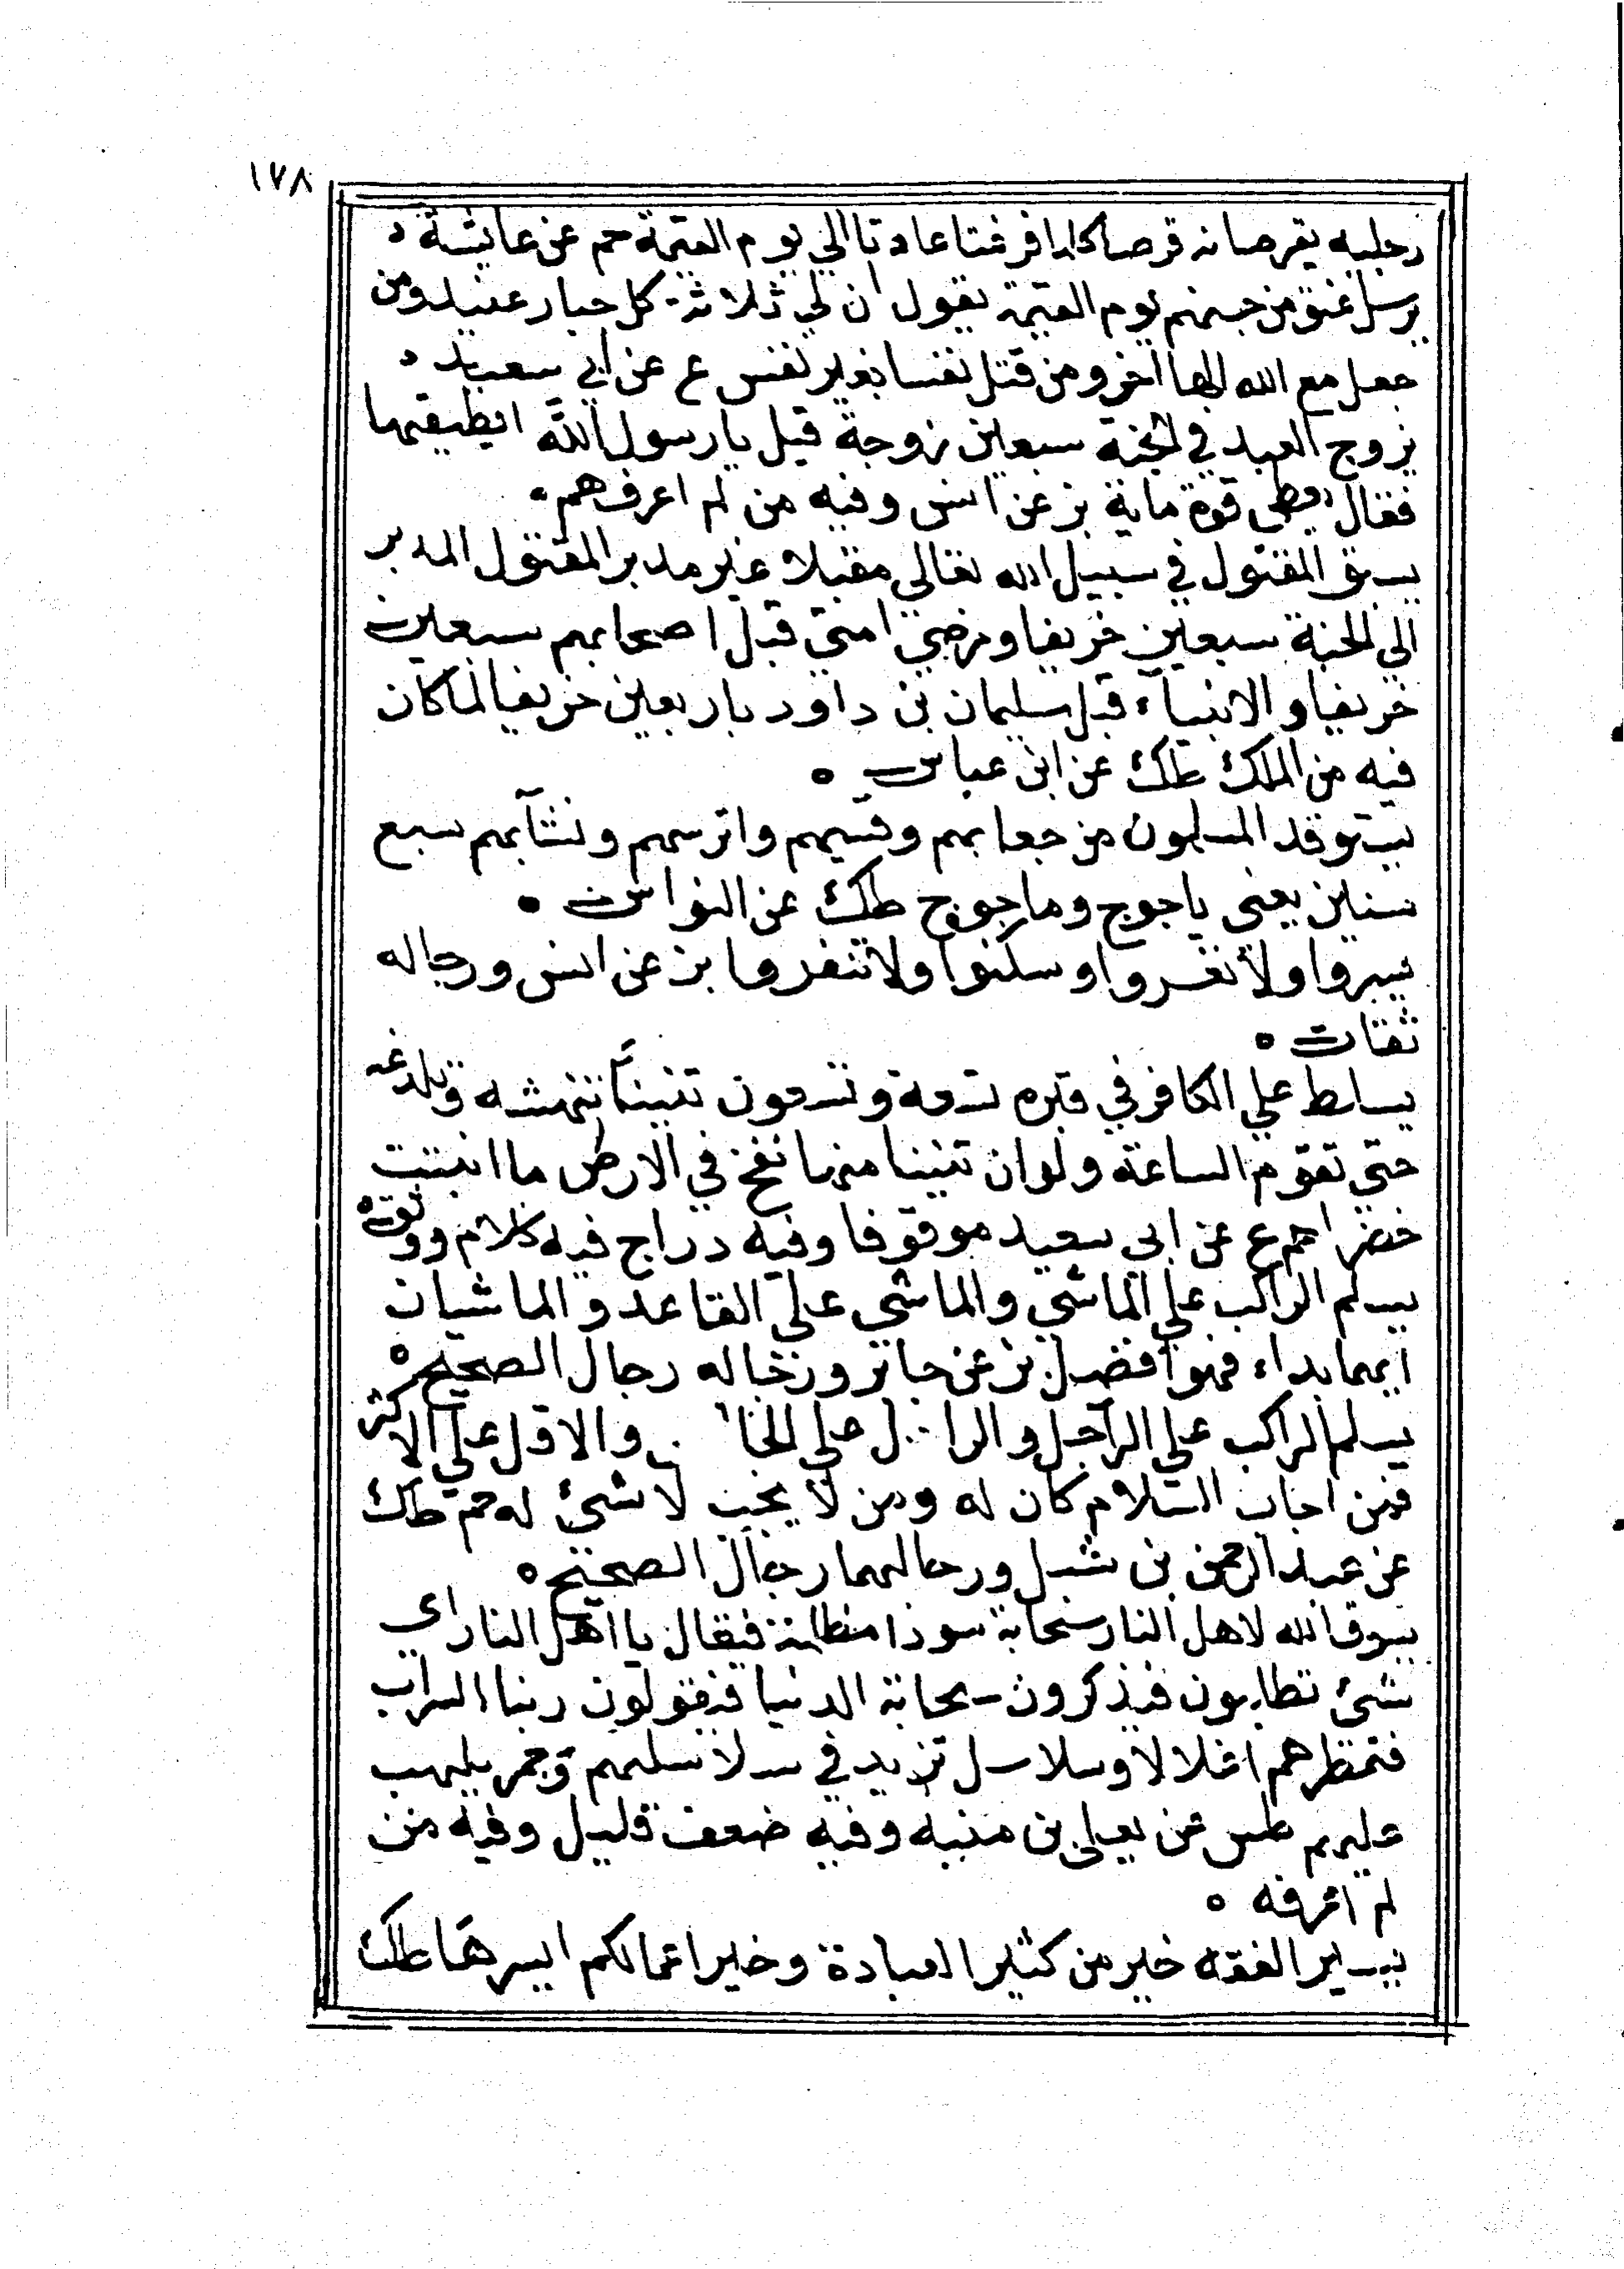 ١٧٨
رجليه يقرصانه قرصا كلما فرغتا عادتا الي يوم القيمة حم عن عايشة ه
يرسل عنق من جهنم يوم القيمة يقول ان لي ثلاثة كل جبار عنيد ومن
جعل مع الله الها اخر ومن قتل نفسا بغير نفس ع عن ابي سعيد ه
يزوج العبد في الجنة سبعين زوجة قيل يا رسول الله ايطيقها
فقال يعطى قوة ماية بز عن انس وفيه من لم اعرفهم ه
يسبق المقتول في سبيل الله تعالي مقبلا غير مدبر المقتول المدبر
الي الجنة سبعين خريفا ومرضي امتي قبل اصحابهم سبعين
خريفا والانبياء قبل سليمان بن داود باربعين خريفا لما كان
فيه من الملك طك عن ابن عباس ه
يستوقد المسلمون من جعابهم وقسيهم واترسهم ونشآبهم سبع
سنين يعني ياجوج وماجوج طك عن النواس ه
يسروا ولا تعسروا وسكنوا ولا تنفروا بز عن انس ورجاله
ثقات ه
يسلط علي الكافر في قبره تسعة وتسعون تنينا تنهشه وتلدغه
حتي تقوم الساعة ولو ان تنينا منها نفخ في الارض ما انبتت
خضرا حم ع عن ابي سعيد موقوفا وفيه دراج فيه كلام ووثق ه
يسلم الراكب علي الماشي والماشي علي القاعد والماشيان
ايهما بداء فهو افضل بز عن جابر ورجاله رجال الصحيح ه
يسلم الراكب علي الراجل والراجل علي والاقل علي الاكثر
فمن اجاب السلام كان له ومن لا يجب لا شيئ له حم طك
عن عبد الرحمن بن شبل ورجالهما رجال الصحيح ه
يسوق الله لاهل النار سحابة سودا مظلمة فيقال يا اهل النار اي
شيئ تطلبون فيذكرون سحابة الدنيا فيقولون ربنا الشراب
فتمطرهم اغلالا وسلاسل تزيد في سلاسلهم وجمر يلهب
عليهم طس عن يعلي بن منبه وفيه ضعف قليل وفيه من
لم اعرفه ه
يسير الفقه خير من كثير العبادة وخير اعمالكم ايسرها طك